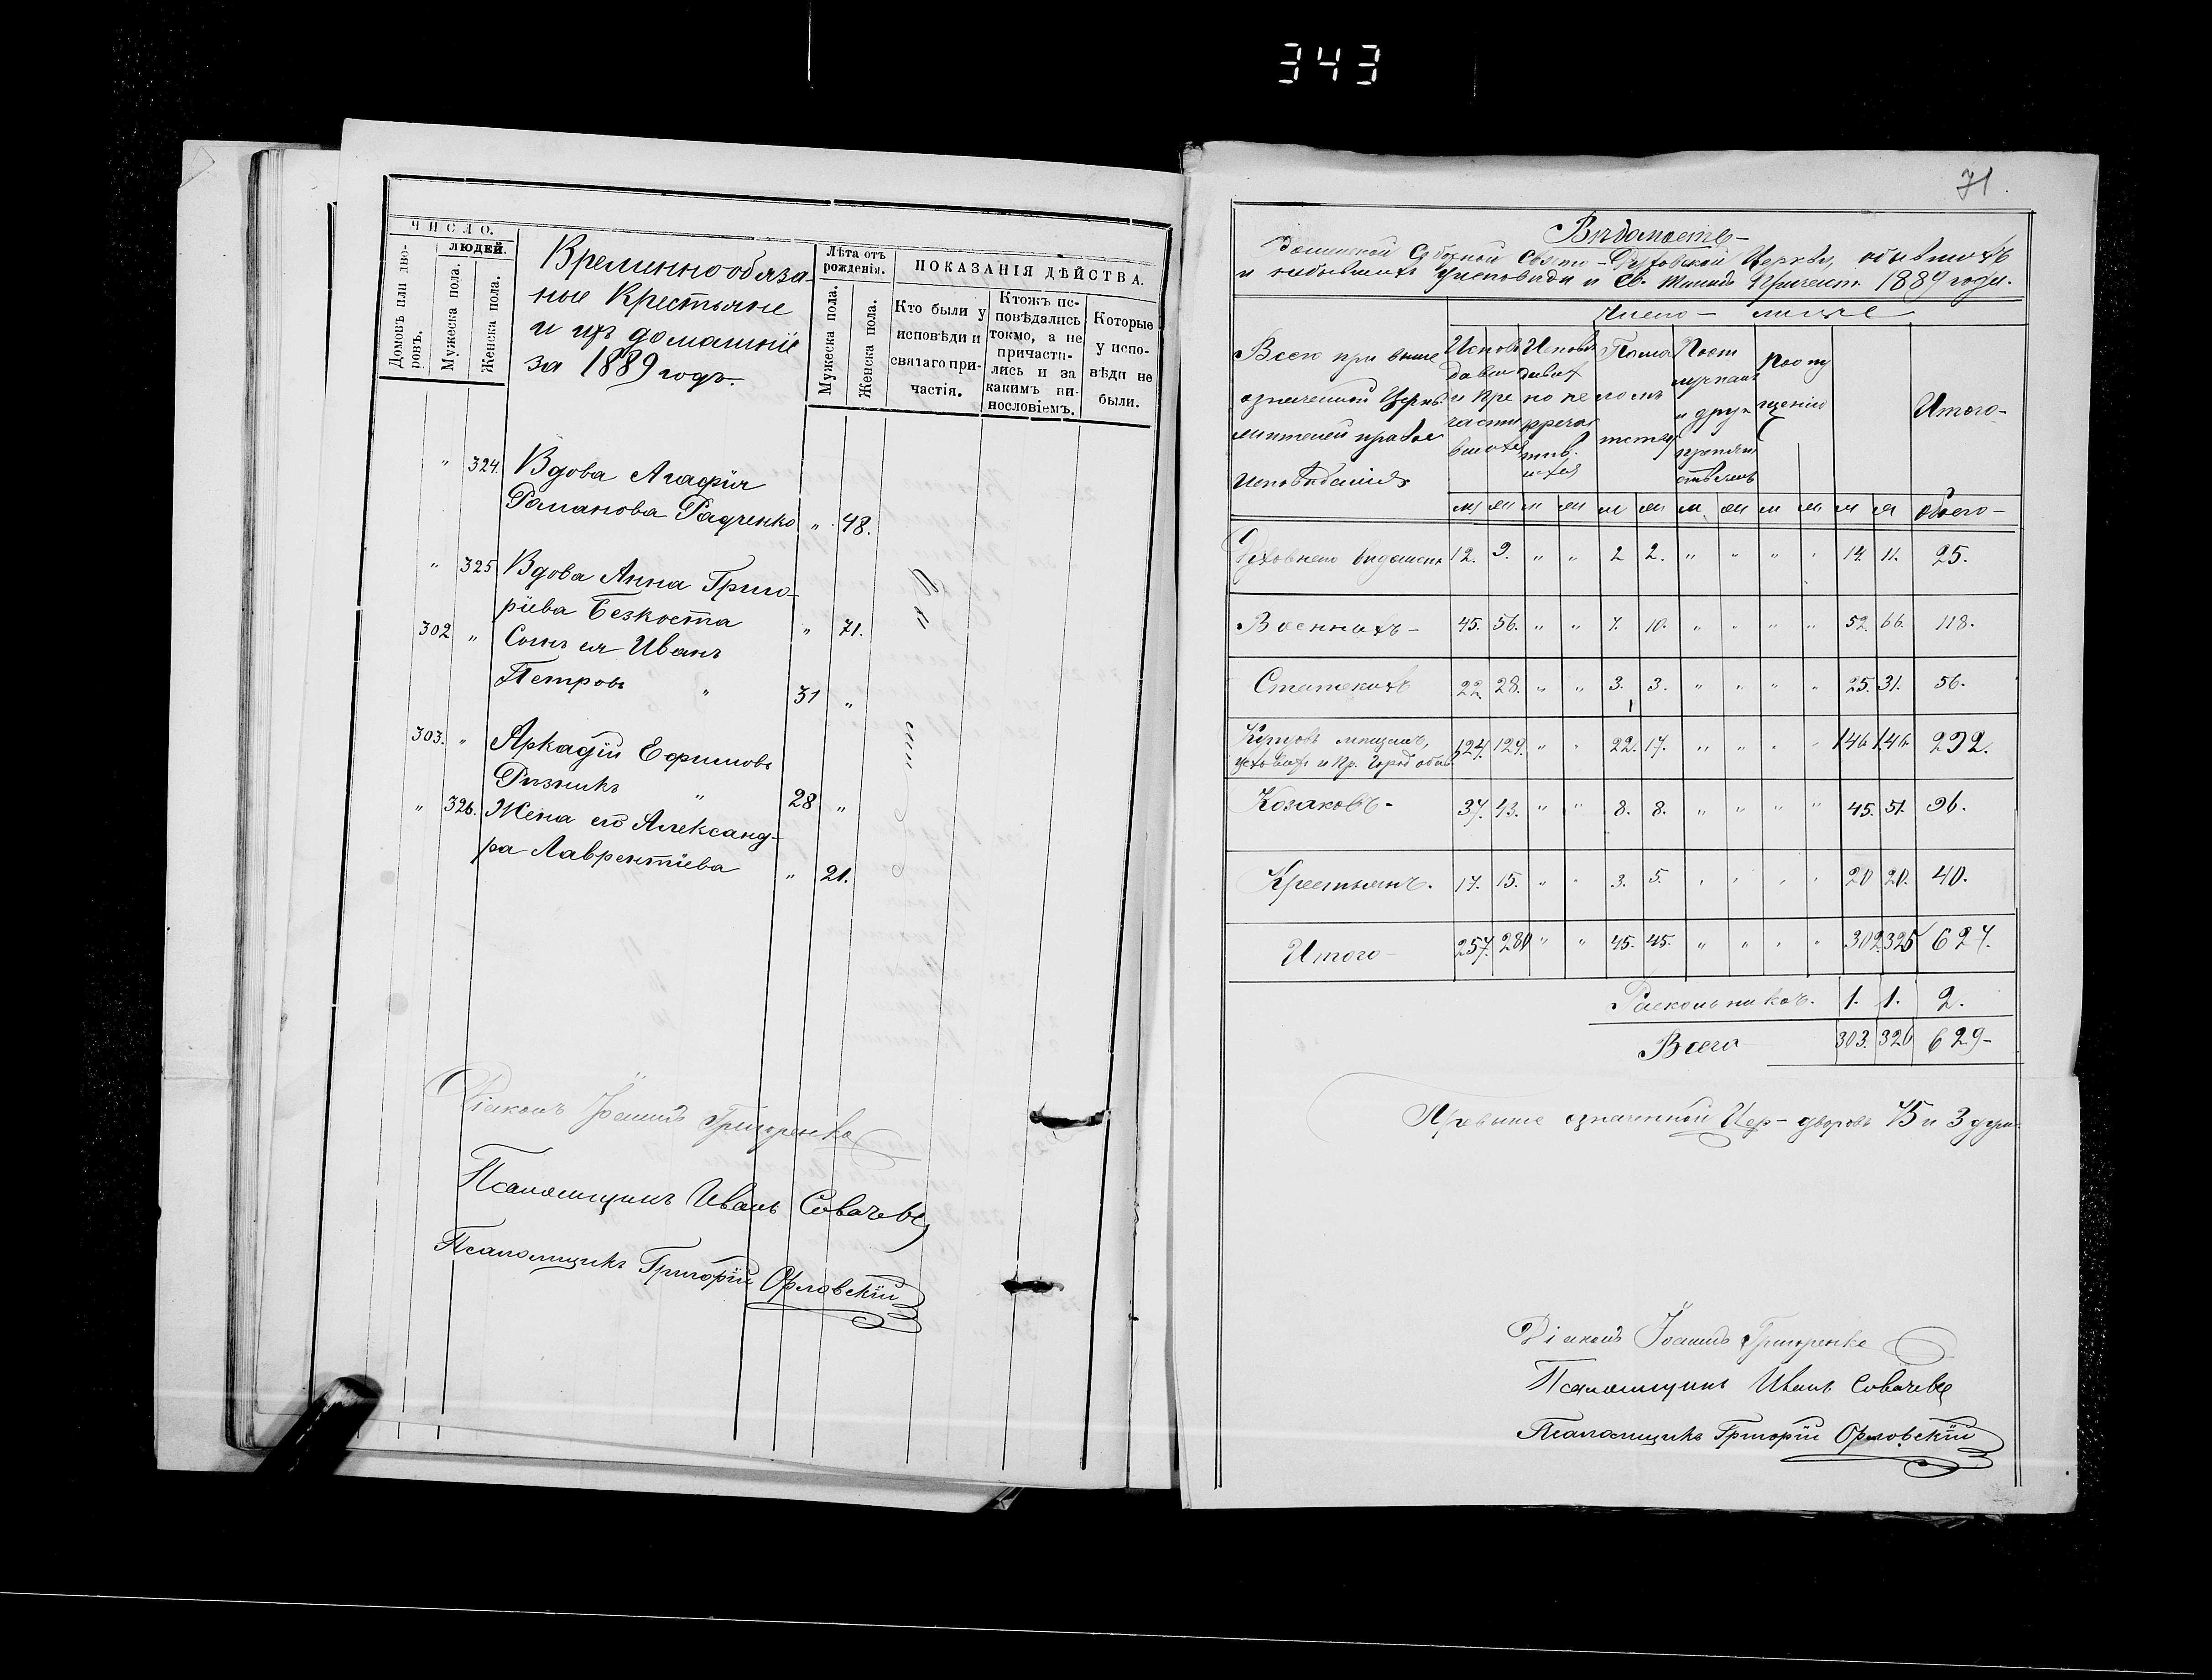 343
ЧИСЛО.
Домовъ или дворовъ.
людей.
Мужеска пола.
Женска пола.
Временнообяза-
ные Крестьяне
и ихъ домашніе
за 1889 годъ.
Лѣта отъ рожденія.
Мужеска пола.
Женска пола.
ПОКАЗАНІЯ ДѢЙСТВА.
Кто были у
исповѣди и
святаго при-
частія.
Ктожъ ис-
повѣдались
токмо, а не
причасти-
лись и за
какимъ ви-
нословіемъ.
Которые
у испо-
вѣди не
были.
" 324. Вдова Агафія
Романова Радченко " 48.
" 325 Вдова Анна Григо-
ріева Безкоста " 71.
302 " Сынъ ея Иванъ
Петровъ " 31 "
303. " Аркадій Ефимовъ
Ризникъ " 28 "
" 326. Жена его Александ-
ра Лаврентіева " 21.
Діаконъ Іоаннъ Григоренко
Псаломщикъ Иванъ
Псаломщикъ Григорій Орловскій
71.
Вѣдомость
Соборной Свято-Духовской Церкви, о бывшихъ
и небывшихъ у исповѣди и Св. Таинъ Причаст. 1889 года.
Число лицъ
Всего при выше
означенной Церкви
жителей правос
исповѣданія
Исповѣ
давш
и При
части
вшихся
Исповѣ
давш
но не
причас
тив.
шихся
По ма
лолѣ
тству
По от
лучкамъ
и друг
препят
ствіямъ
По опу
щенію
Итого
м ж м ж м ж м ж м ж м ж обоего
Духовнаго вѣдомст 12. 9. " " 2 2. " " " " 14. 11. 25.
Военныхъ 45. 56. " " 7. 10. " " " " 52. 66. 118.
Статскихъ 22. 28. " " 3. 3. " " " " 25. 31. 56.
Купцовъ мѣщанъ,
цеховых и пр. город обыв. 124. 129. " " 22. 17. " " " " 146 146 292.
Козаковъ- 37. 43. " " 8. 8. " " " " 45. 51. 96.
Крестьянъ. 17. 15. " " 3. 5. " " " " 20 20. 40.
Итого 257. 280 " " 45. 45. " " " " 302 325 627.
Раскольниковъ. 1. 1. 2.
Всего 303. 326 629-
При выше означенной Цер- дворовъ 75 и 3
Діаконъ Іоаннъ Григоренко
Псаломщикъ Иванъ
Псаломщикъ Григорій Орловскій